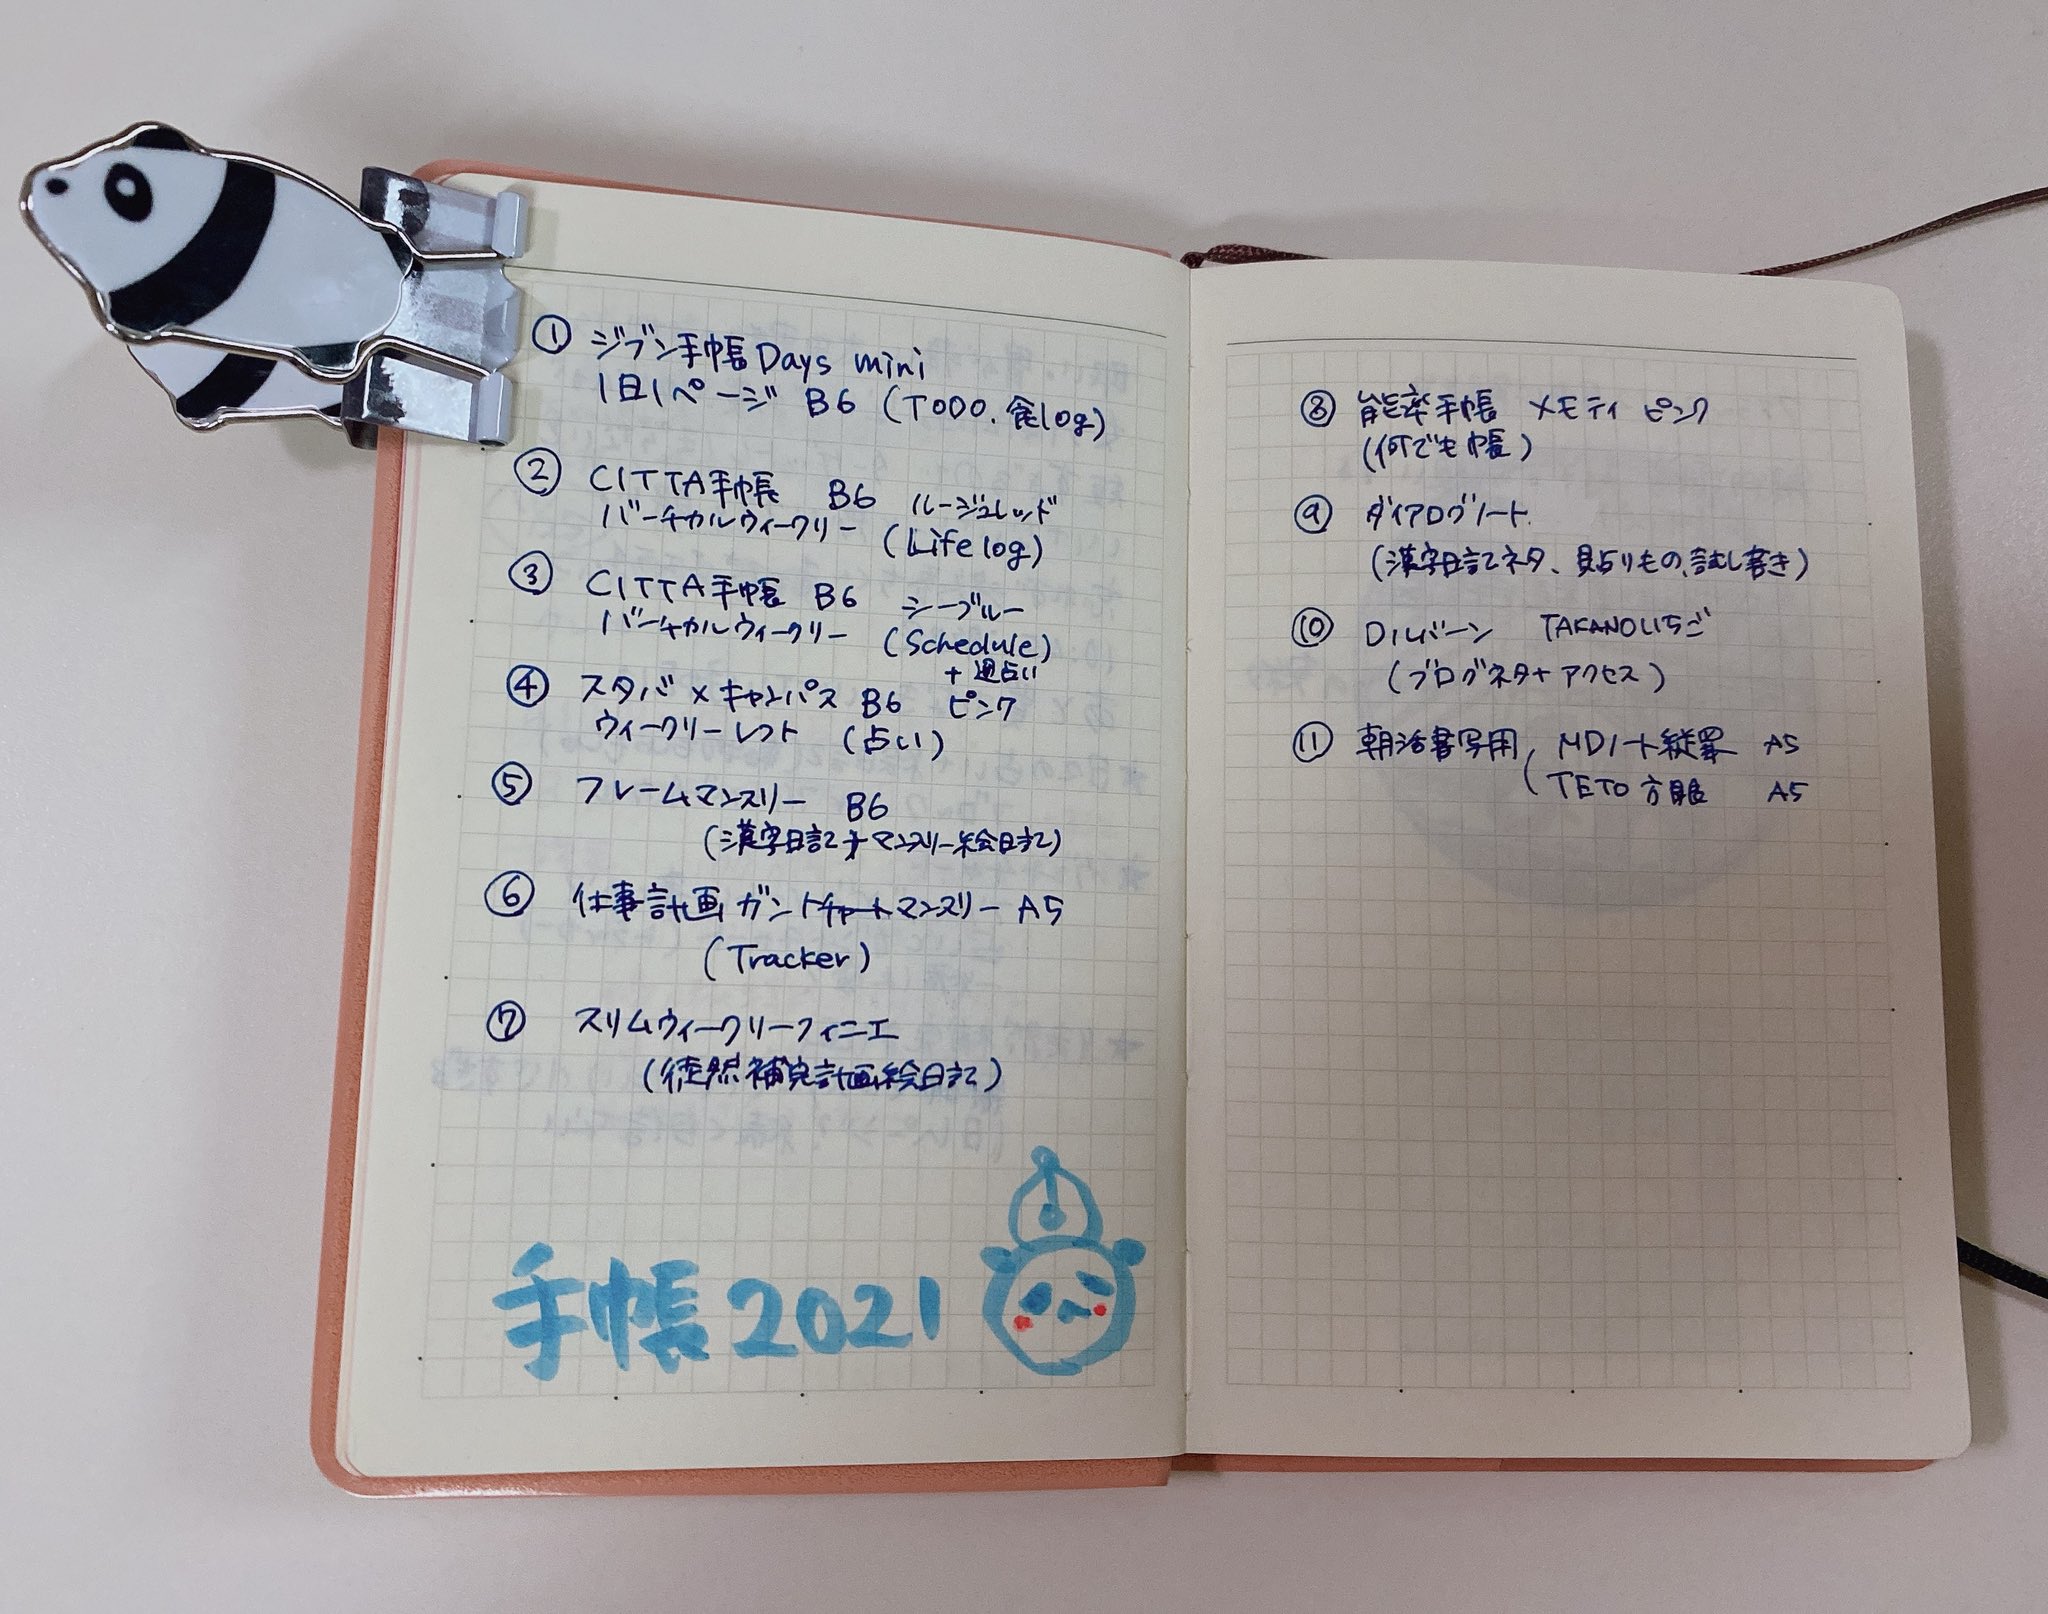 ① ジブン手帳 Days mini
1日1ページ B6 (TODO、食log)
② CITTA手帳 B6 ルージュレッド
バーチカルウィークリー (Life log)
③ CITTA手帳 B6 シーブルー
バーチカルウィークリー (Schedule)
+ 週占い
④ スタバ×キャンパス B6 ピンク
ウィークリーレフト (占い)
⑤ フレームマンスリー B6
(漢字日記+マンスリー絵日記)
⑥ 仕事計画 ガントチャートマンスリー A5
(Tracker)
⑦ スリムウィークリーフィニエ
(徒然補完計画絵日記)
手帳2021
⑧ 能率手帳 メモティ ピンク
(何でも帳)
⑨ ダイアログノート
(漢字日記ネタ、貼りもの、試し書き)
⑩ ロルバーン TAKANOいちご
(ブログネタ+アクセス)
⑪ 朝活書写用 MDノート縦罫 A5
TETO方眼 A5